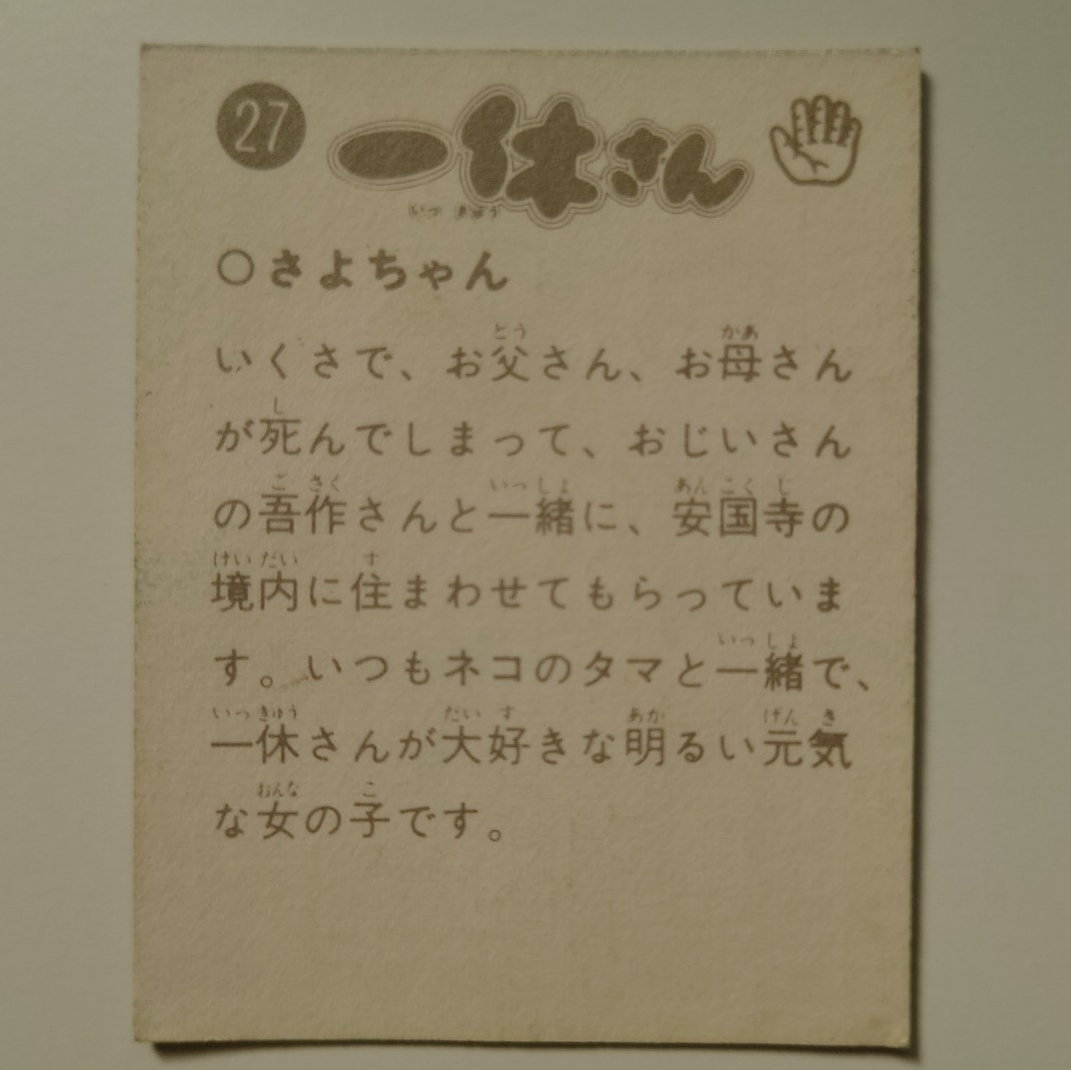 27
一休さん
いっきゅう
○さよちゃん
いくさで、お父さん、お母さん
が死んでしまって、おじいさん
の吾作さんと一緒に、安国寺の
境内に住まわせてもらっていま
す。いつもネコのタマと一緒で、
一休さんが大好きな明るい元気
な女の子です。